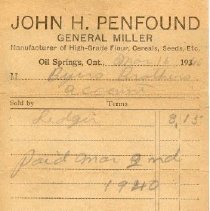 JOHN H. PENFOUND
GENERAL MILLER
Manufacturer of High-Grade Flour, Cereals, Seeds, Etc.
Oil Springs, Ont. 193
M Burns Brothers
account
Sold by Terms
Ledger 8.15
Paid Mar 2nd
1940